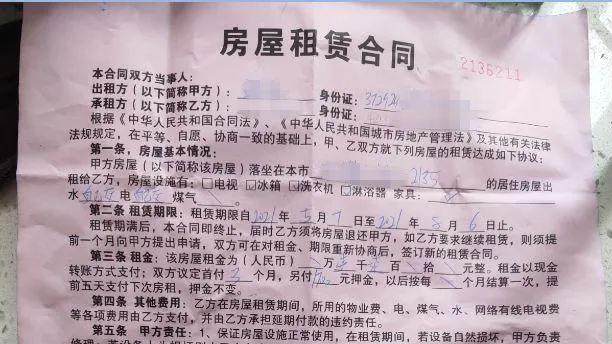 房屋租赁合同
2136211
本合同双方当事人：
出租方（以下简称甲方）： 身份证：
承租方（以下简称乙方）： 身份证：
根据《中华人民共和国合同法》、《中华人民共和国城市房地产管理法》及其他有关法律
法规规定，在平等、自愿、协商一致的基础上，甲、乙双方就下列房屋的租赁达成如下协议：
第一条，房屋基本情况：
甲方房屋（以下简称该房屋）落坐在本市 2135 的居住房屋出
租给乙方，房屋设施有：□电视 □冰箱 □洗衣机 □淋浴器 家具：
水 电 煤气 。
第二条 租赁期限：租赁期限自2021年5月7日至2021年8月6日止。
租赁期满后，本合同即终止，届时乙方须将房屋退还甲方，如乙方要求继续租赁，则须提
前一个月向甲方提出申请，双方可在对租金、期限重新协商后，签订新的租赁合同。
第三条 租金：该房屋租金为（人民币） 万 仟 百 拾 元整。租金以现金
转账方式支付；双方议定首付 个月，另付 元押金，以后按每 个月结算一次，提
前五天支付下次房租，押金不变。
第四条 其他费用：乙方在房屋租赁期间，所用的物业费、电、煤气、水、网络有线电视费
等各项费用由乙方支付，并由乙方承担延期付款的违约责任。
第五条 甲方责任：1、保证房屋设施正常使用，在租赁期间，若设备自然损坏，甲方负责